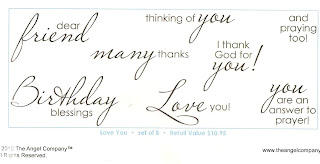 dear
friend
thinking of you
and
praying
too!
many thanks
I thank
God for
you!
Birthday
blessings
Love you!
you
are an
answer to
prayer!
Love You • set of 8 • Retail Value $10.95
2010 The Angel Company™
Rights Reserved.
www.theangelcompany